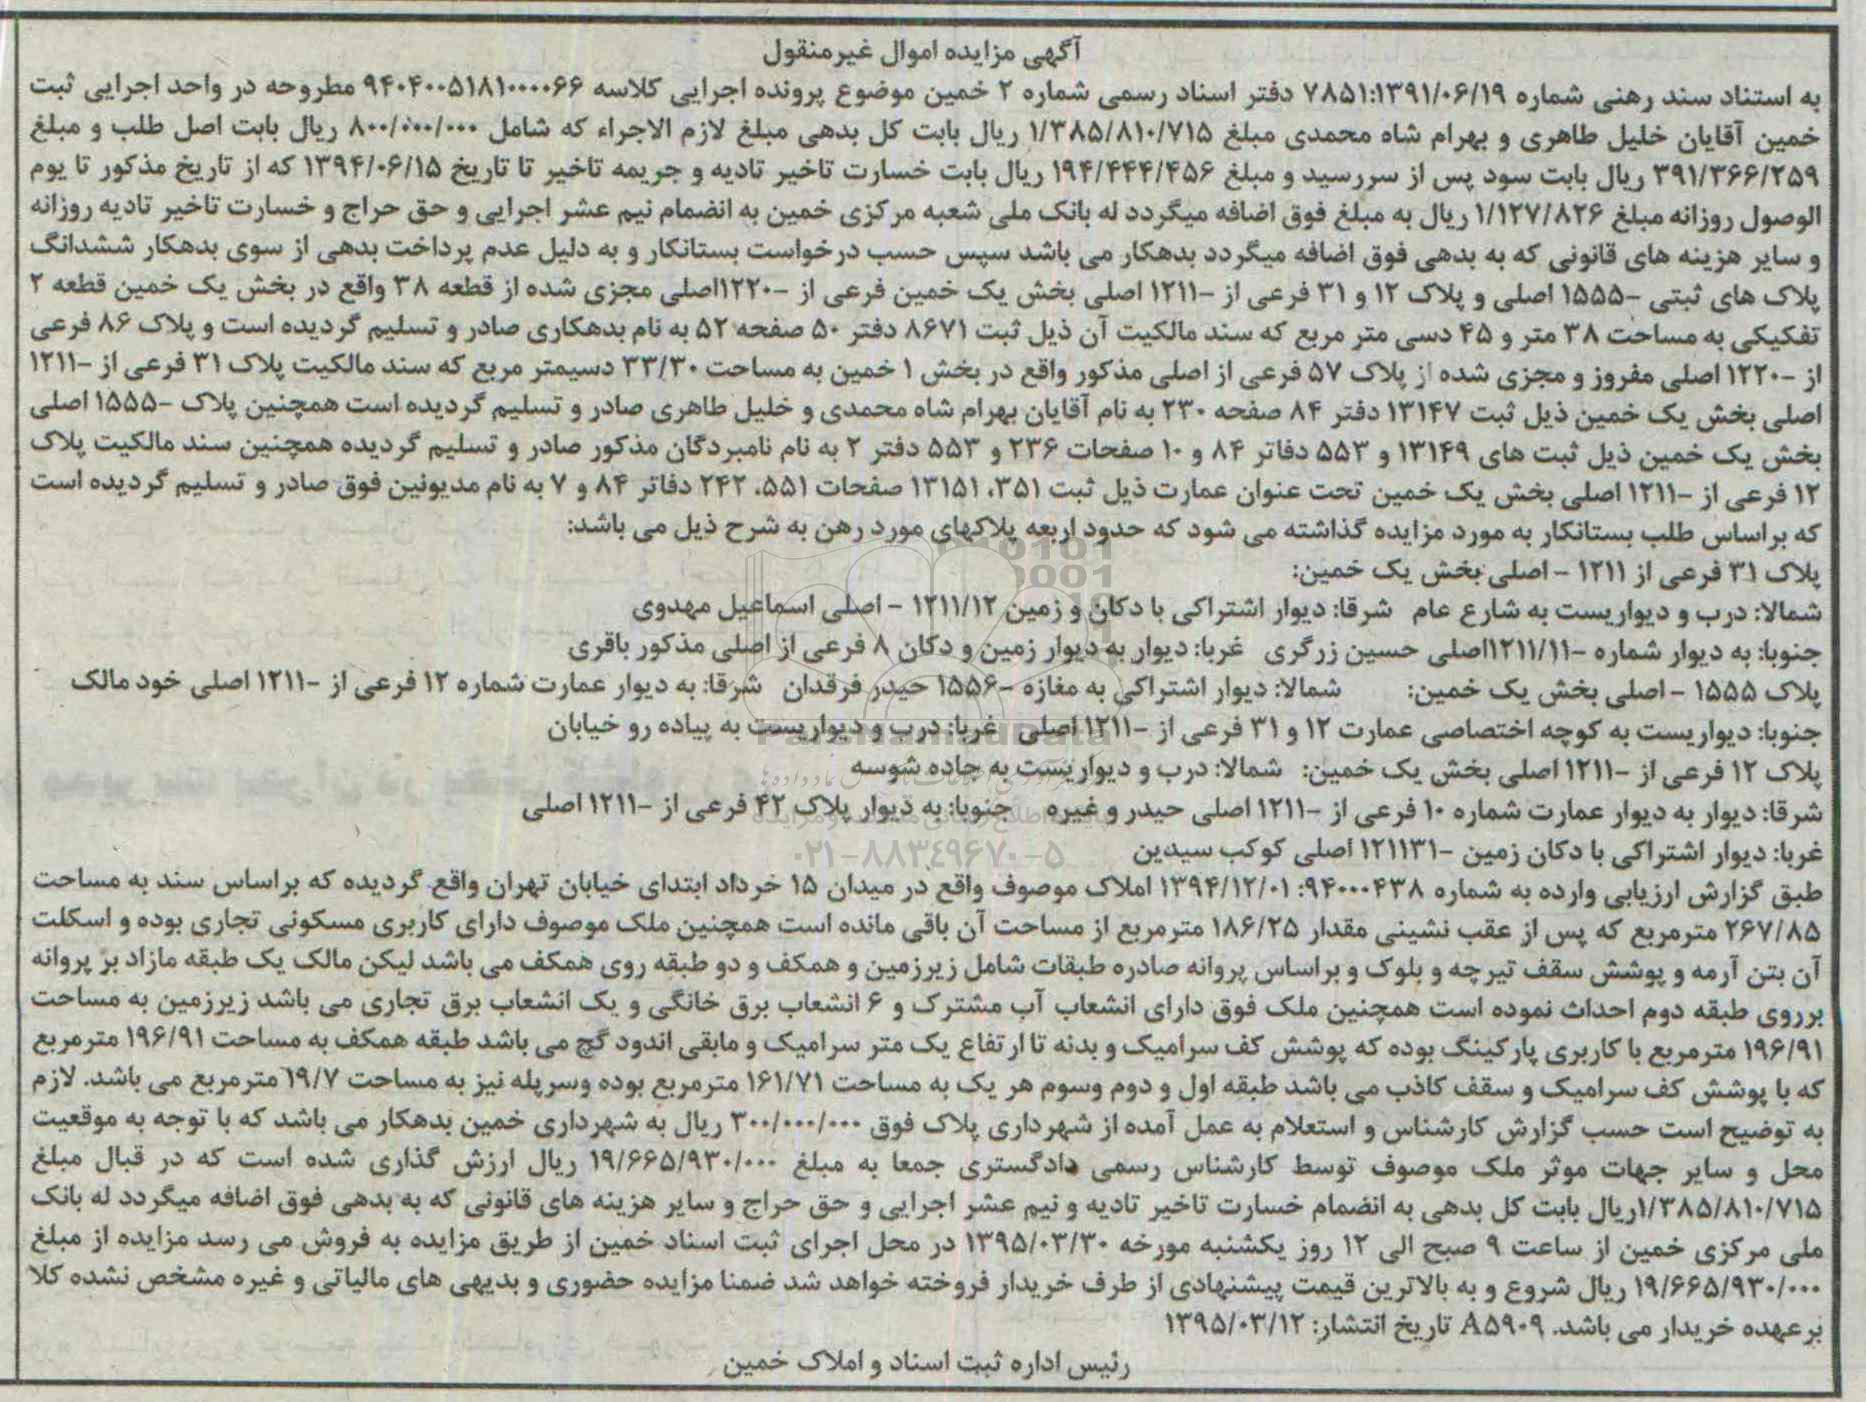 آگهی مزایده اموال غیرمنقول
به استناد سند رهنی شماره ۷۸۵۱:۱۳۹۱/۰۶/۱۹ دفتر اسناد رسمی شماره ۲ خمین موضوع پرونده اجرایی کلاسه ۹۴۰۴۰۰۵۱۸۱۰۰۰۰۶۶ مطروحه در واحد اجرایی ثبت
خمین آقایان خلیل طاهری و بهرام شاه محمدی مبلغ ۱/۳۸۵/۸۱۰/۷۱۵ ریال بابت کل بدهی مبلغ لازم الاجراء که شامل ۸۰۰/۰۰۰/۰۰۰ ریال بابت اصل طلب و مبلغ
۳۹۱/۳۶۶/۲۵۹ ریال بابت سود پس از سررسید و مبلغ ۱۹۴/۴۴۴/۴۵۶ ریال بابت خسارت تاخیر تادیه و جریمه تاخیر تا تاریخ ۱۳۹۴/۰۶/۱۵ که از تاریخ مذکور تا یوم
الوصول روزانه مبلغ ۱/۱۲۷/۸۲۶ ریال به مبلغ فوق اضافه میگردد له بانک ملی شعبه مرکزی خمین به انضمام نیم عشر اجرایی و حق حراج و خسارت تاخیر تادیه روزانه
و سایر هزینه های قانونی که به بدهی فوق اضافه میگردد بدهکار می باشد سپس حسب درخواست بستانکار و به دلیل عدم پرداخت بدهی از سوی بدهکار ششدانگ
پلاک های ثبتی -۱۵۵۵ اصلی و پلاک ۱۲ و ۳۱ فرعی از -۱۲۱۱ اصلی بخش یک خمین فرعی از -۱۲۲۰اصلی مجزی شده از قطعه ۳۸ واقع در بخش یک خمین قطعه ۲
تفکیکی به مساحت ۳۸ متر و ۴۵ دسی متر مربع که سند مالکیت آن ذیل ثبت ۸۶۷۱ دفتر ۵۰ صفحه ۵۲ به نام بدهکاری صادر و تسلیم گردیده است و پلاک ۸۶ فرعی
از -۱۲۲۰ اصلی مفروز و مجزی شده از پلاک ۵۷ فرعی از اصلی مذکور واقع در بخش ۱ خمین به مساحت ۳۳/۳۰ دسیمتر مربع که سند مالکیت پلاک ۳۱ فرعی از -۱۲۱۱
اصلی بخش یک خمین ذیل ثبت ۱۳۱۴۷ دفتر ۸۴ صفحه ۲۳۰ به نام آقایان بهرام شاه محمدی و خلیل طاهری صادر و تسلیم گردیده است همچنین پلاک -۱۵۵۵ اصلی
بخش یک خمین ذیل ثبت های ۱۳۱۴۹ و ۵۵۳ دفاتر ۸۴ و ۱۰ صفحات ۲۳۶ و ۵۵۳ دفتر ۲ به نام نامبردگان مذکور صادر و تسلیم گردیده همچنین سند مالکیت پلاک
۱۲ فرعی از -۱۲۱۱ اصلی بخش یک خمین تحت عنوان عمارت ذیل ثبت ۳۵۱، ۱۳۱۵۱ صفحات ۵۵۱، ۲۴۲ دفاتر ۸۴ و ۷ به نام مدیونین فوق صادر و تسلیم گردیده است
که براساس طلب بستانکار به مورد مزایده گذاشته می شود که حدود اربعه پلاکهای مورد رهن به شرح ذیل می باشد:
پلاک ۳۱ فرعی از ۱۲۱۱ - اصلی بخش یک خمین:
شمالا: درب و دیواریست به شارع عام شرقا: دیوار اشتراکی با دکان و زمین ۱۲۱۱/۱۲ - اصلی اسماعیل مهدوی
جنوبا: به دیوار شماره -۱۲۱۱/۱۱اصلی حسین زرگری غربا: دیوار به دیوار زمین و دکان ۸ فرعی از اصلی مذکور باقری
پلاک ۱۵۵۵ - اصلی بخش یک خمین: شمالا: دیوار اشتراکی به مغازه -۱۵۵۶ حیدر فرقدان شرقا: به دیوار عمارت شماره ۱۲ فرعی از -۱۲۱۱ اصلی خود مالک
جنوبا: دیواریست به کوچه اختصاصی عمارت ۱۲ و ۳۱ فرعی از -۱۲۱۱ اصلی غربا: درب و دیواریست به پیاده رو خیابان
پلاک ۱۲ فرعی از -۱۲۱۱ اصلی بخش یک خمین: شمالا: درب و دیواریست به جاده شوسه
شرقا: دیوار به دیوار عمارت شماره ۱۰ فرعی از -۱۲۱۱ اصلی حیدر و غیره جنوبا: به دیوار پلاک ۴۲ فرعی از -۱۲۱۱ اصلی
غربا: دیوار اشتراکی با دکان زمین -۱۲۱۱۳۱ اصلی کوکب سیدین
۰۲۱-۸۸۳۴۹۶۷۰-۵
طبق گزارش ارزیابی وارده به شماره ۹۴۰۰۰۴۳۸: ۱۳۹۴/۱۲/۰۱ املاک موصوف واقع در میدان ۱۵ خرداد ابتدای خیابان تهران واقع گردیده که براساس سند به مساحت
۲۶۷/۸۵ مترمربع که پس از عقب نشینی مقدار ۱۸۶/۲۵ مترمربع از مساحت آن باقی مانده است همچنین ملک موصوف دارای کاربری مسکونی تجاری بوده و اسکلت
آن بتن آرمه و پوشش سقف تیرچه و بلوک و براساس پروانه صادره طبقات شامل زیرزمین و همکف و دو طبقه روی همکف می باشد لیکن مالک یک طبقه مازاد بر پروانه
برروی طبقه دوم احداث نموده است همچنین ملک فوق دارای انشعاب آب مشترک و ۶ انشعاب برق خانگی و یک انشعاب برق تجاری می باشد زیرزمین به مساحت
۱۹۶/۹۱ مترمربع با کاربری پارکینگ بوده که پوشش کف سرامیک و بدنه تا ارتفاع یک متر سرامیک و مابقی اندود گچ می باشد طبقه همکف به مساحت ۱۹۶/۹۱ مترمربع
که با پوشش کف سرامیک و سقف کاذب می باشد طبقه اول و دوم وسوم هر یک به مساحت ۱۶۱/۷۱ مترمربع بوده وسرپله نیز به مساحت ۱۹/۷ مترمربع می باشد. لازم
به توضیح است حسب گزارش کارشناس و استعلام به عمل آمده از شهرداری پلاک فوق ۳۰۰/۰۰۰/۰۰۰ ریال به شهرداری خمین بدهکار می باشد که با توجه به موقعیت
محل و سایر جهات موثر ملک موصوف توسط کارشناس رسمی دادگستری جمعا به مبلغ ۱۹/۶۶۵/۹۳۰/۰۰۰ ریال ارزش گذاری شده است که در قبال مبلغ
۱/۳۸۵/۸۱۰/۷۱۵ریال بابت کل بدهی به انضمام خسارت تاخیر تادیه و نیم عشر اجرایی و حق حراج و سایر هزینه های قانونی که به بدهی فوق اضافه میگردد له بانک
ملی مرکزی خمین از ساعت ۹ صبح الی ۱۲ روز یکشنبه مورخه ۱۳۹۵/۰۳/۳۰ در محل اجرای ثبت اسناد خمین از طریق مزایده به فروش می رسد مزایده از مبلغ
۱۹/۶۶۵/۹۳۰/۰۰۰ ریال شروع و به بالاترین قیمت پیشنهادی از طرف خریدار فروخته خواهد شد ضمنا مزایده حضوری و بدیهی های مالیاتی و غیره مشخص نشده کلا
برعهده خریدار می باشد. A۵۹۰۹ تاریخ انتشار: ۱۳۹۵/۰۳/۱۲
رئیس اداره ثبت اسناد و املاک خمین